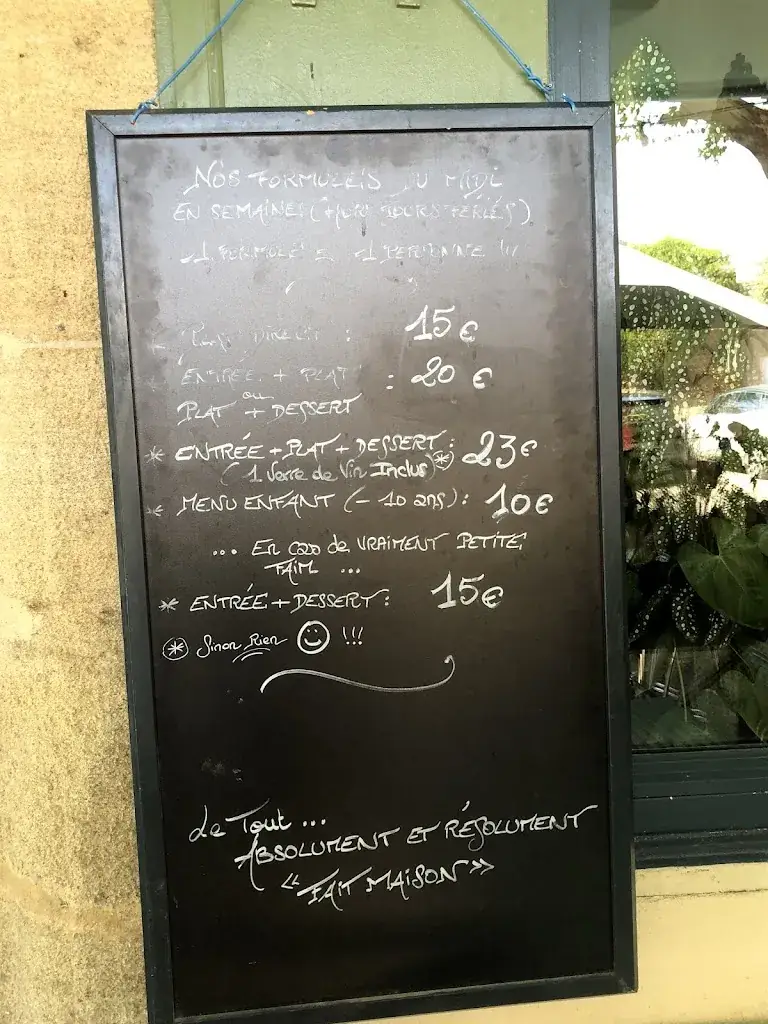 NOS FORMULES DU MIDI
EN SEMAINE! (HORS JOURS FÉRIÉS)
1 FORMULE = 1 PERSONNE !!!
* DIRECT : 15€
* ENTRÉE + PLAT : 20 €
ou
PLAT + DESSERT
* ENTRÉE + PLAT + DESSERT : 23€
(1 Verre de Vin Inclus) *
* MENU ENFANT (- 10 ans) : 10€
... En cas de VRAIMENT PETITE
FAIM ...
* ENTRÉE + DESSERT : 15€
* Sinon Rien ☺ !!!
Le Tout ...
ABSOLUMENT ET RÉSOLUMENT
« FAIT MAISON »